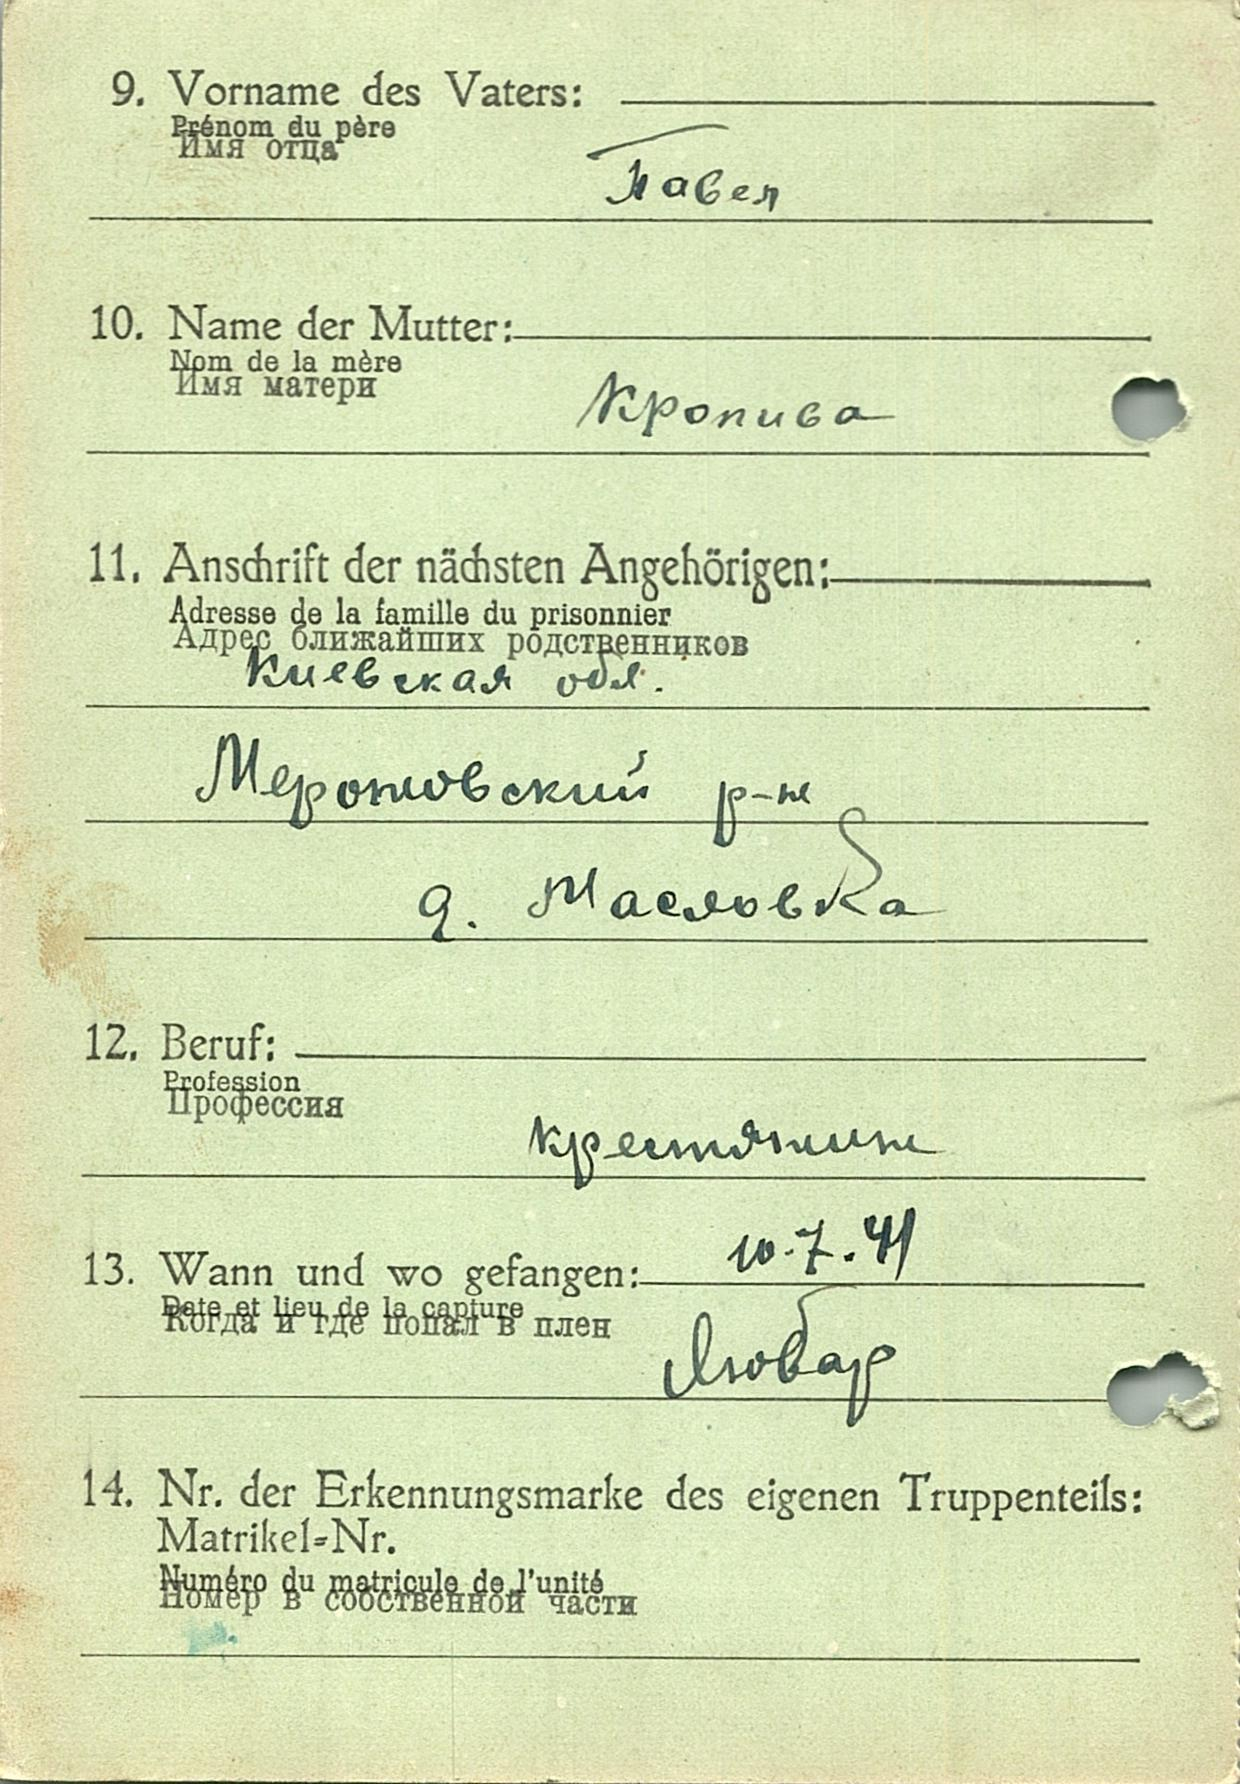 9. Vorname des Vaters:
Prénom du père
Имя отца
Павел
10. Name der Mutter:
Nom de la mère
Имя матери
Кропива
11. Anschrift der nächsten Angehörigen:
Adresse de la famille du prisonnier
Адрес ближайших родственников
Киевская обл.
Мероновский р-н
д. Масловка
12. Beruf:
Profession
Профессия
крестянин
13. Wann und wo gefangen: 10.7.41
Date et lieu de la capture
Когда и где попал в плен
Любар
14. Nr. der Erkennungsmarke des eigenen Truppenteils:
Matrikel-Nr.
Numéro du matricule de l'unité
Номер в собственной части